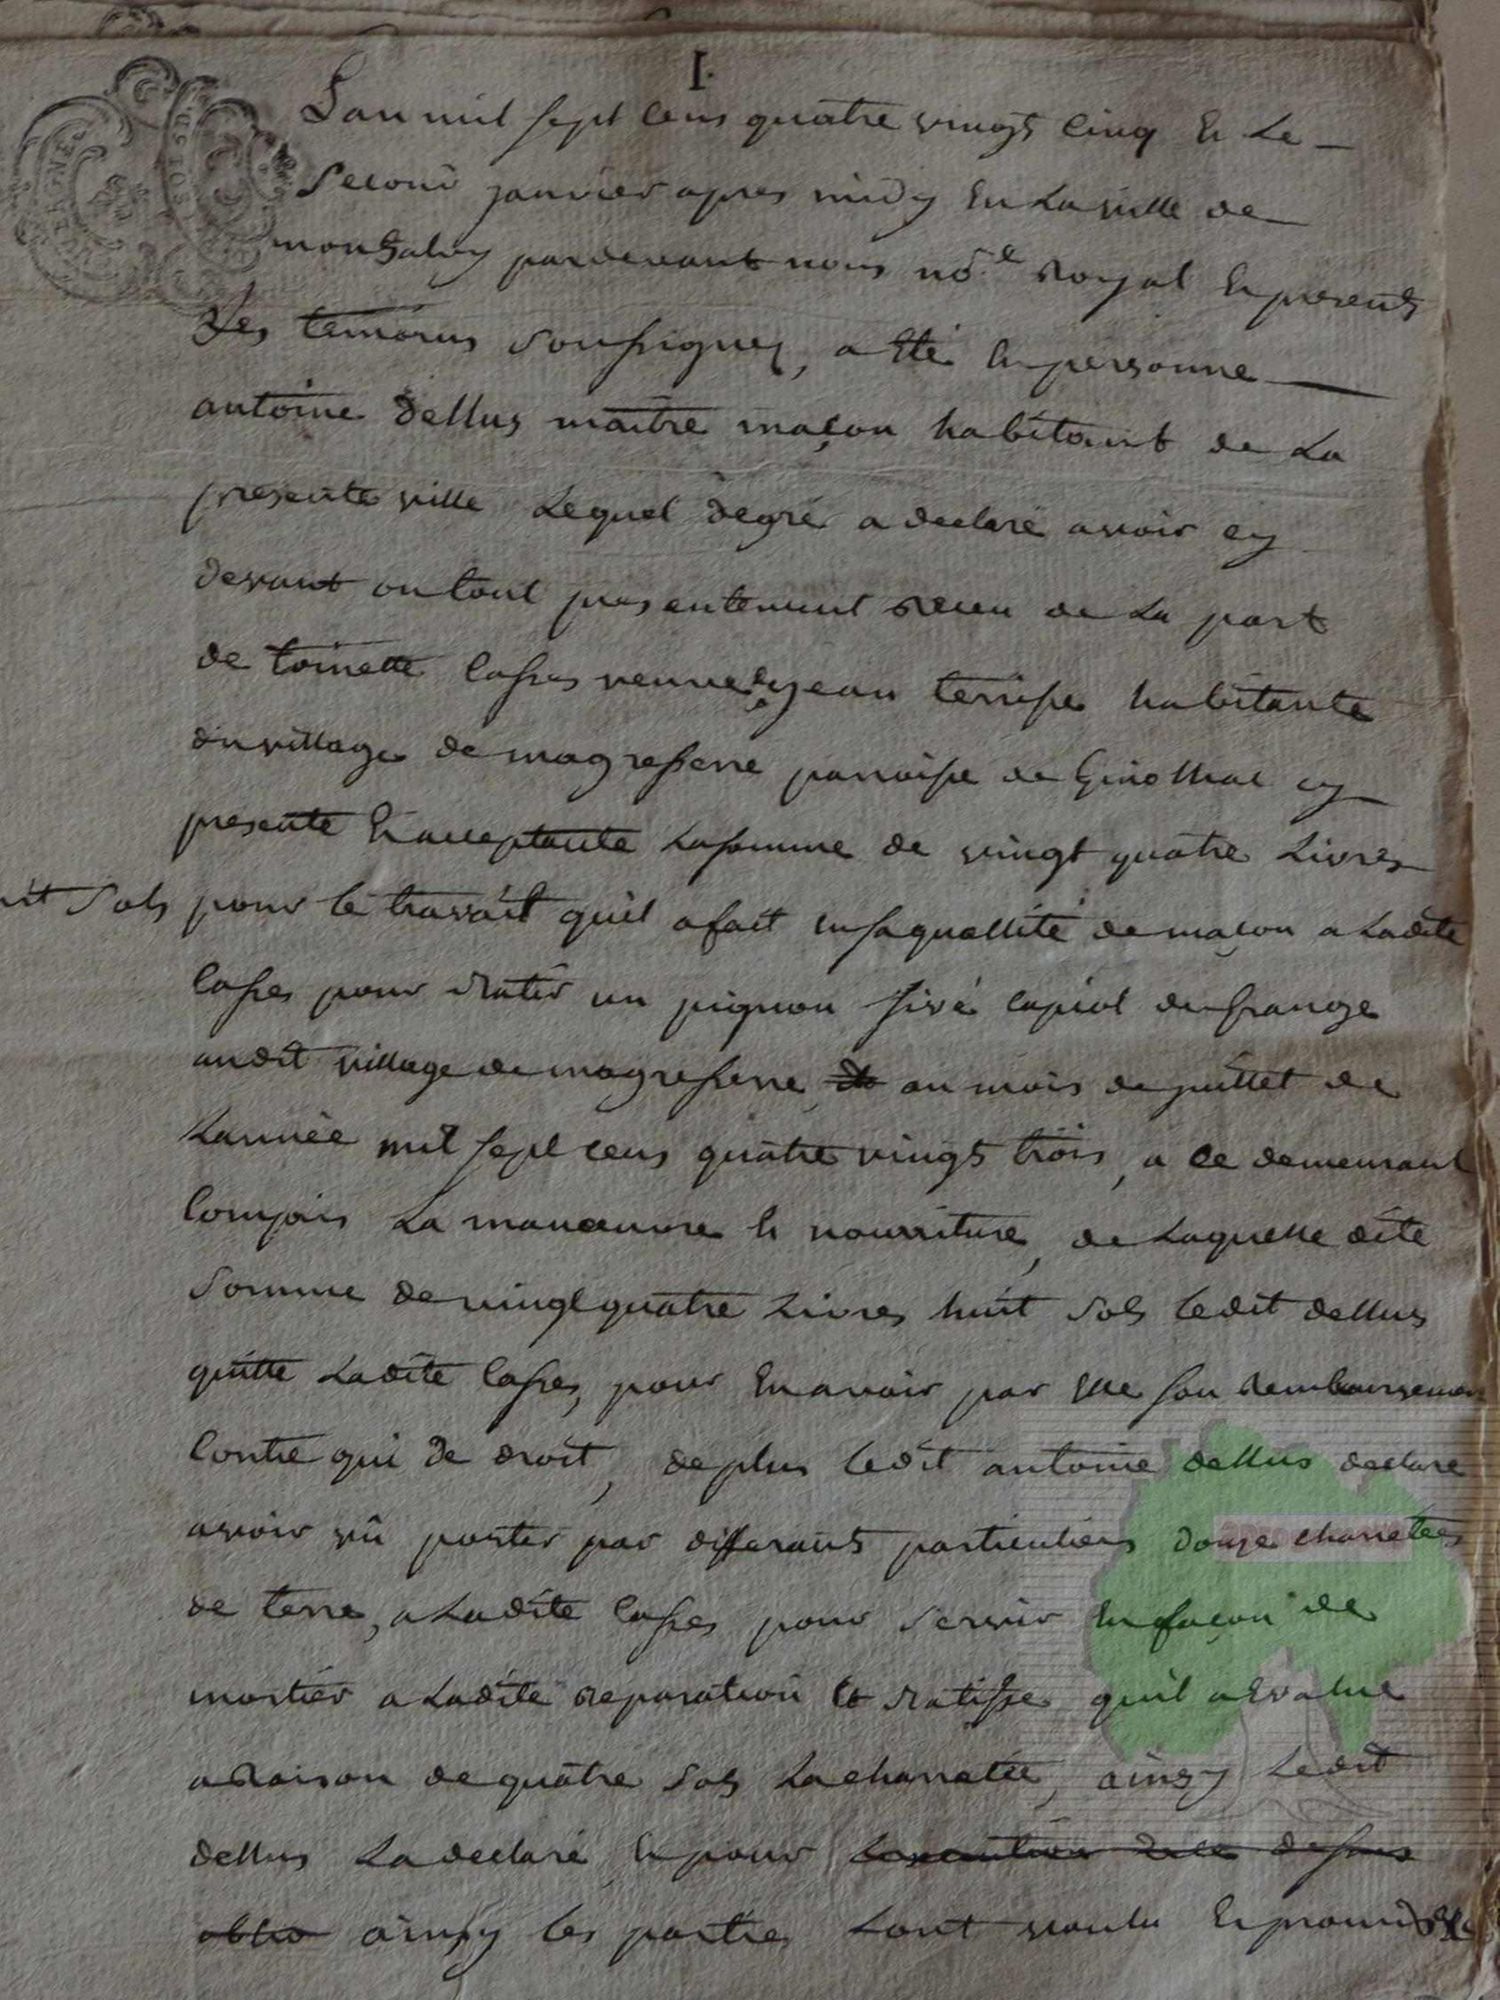 I.
Lan mil sept cens quatre vingts cinq & le
second janvier apres midy en la ville de
montsalvy pardevant nous no.re royal & presents
les temoins soussignez, a eté en personne
antoine dellus maitre maçon habitant de la
presente ville lequel degré a declaré avoir cy
devant ou tout presentement receu de la part
de toinette lasres veuve de jean terrisse habitante
du village de magresserre parroisse de ginolhac cy
presente & acceptante la somme de vingt quatre livres
huit sols pour le travail quil a fait en sa quallité de maçon a ladite
lasres pour batir un pignon de grange
audit village de magresserre au mois de juillet de
lannée mil sept cens quatre vingts trois, a ce demeurant
compris la manœuvre & nourriture, de laquelle dite
somme de vingt quatre livres huit sols ledit dellus
quitte ladite lasres, pour en avoir par elle son remboursement
contre qui de droit, de plus ledit antoine dellus declare
avoir vû porter par differants particuliers douze charretées
de terre, a ladite lasres pour servir en façon de
mortier a ladite reparation & batisse quil a evalué
a raison de quatre sols la charretée, ainsy ledit
dellus la declaré & pour
ainsy les parties lont voulu & promis